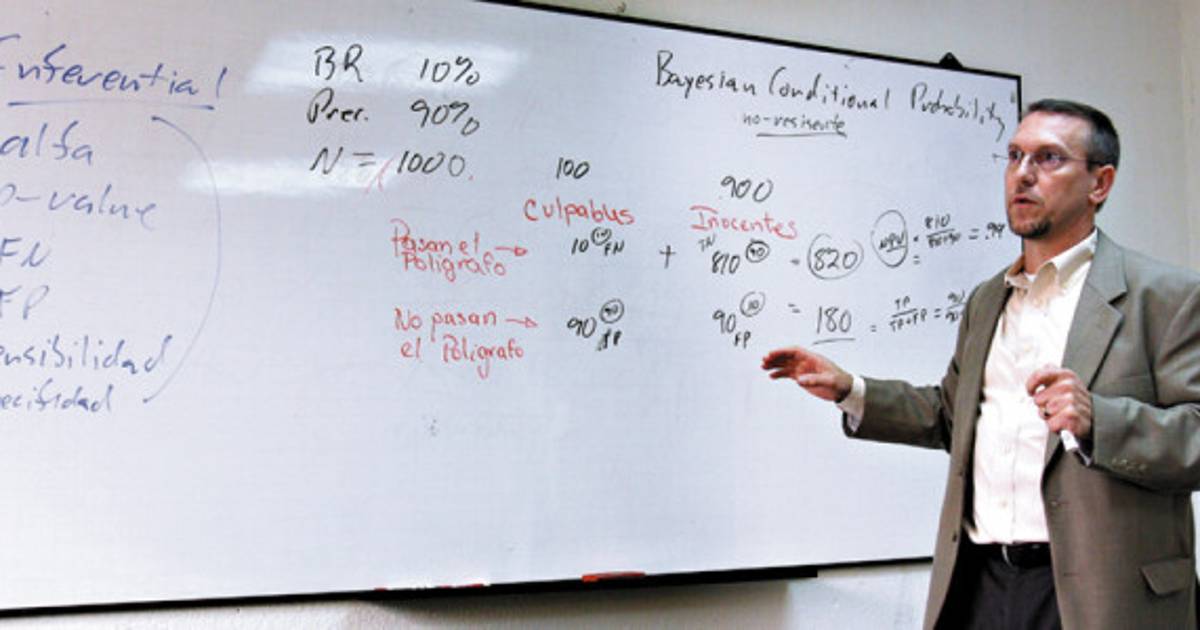 Inferential
alfa
p-value
FN
FP
ensibilidad
ecifidad
BR 10%
Prec. 90%
N = 1000
Bayesian Conditional Probability
100
900
Culpables
Inocentes
Pasan el
Poligrafo
10 10 FN
+
TN
810 90
= 820
NPV
810
= .99
No pasan
el Poligrafo
90 90
90 10
FP
= 180
=
TP
TP+FP
=
90